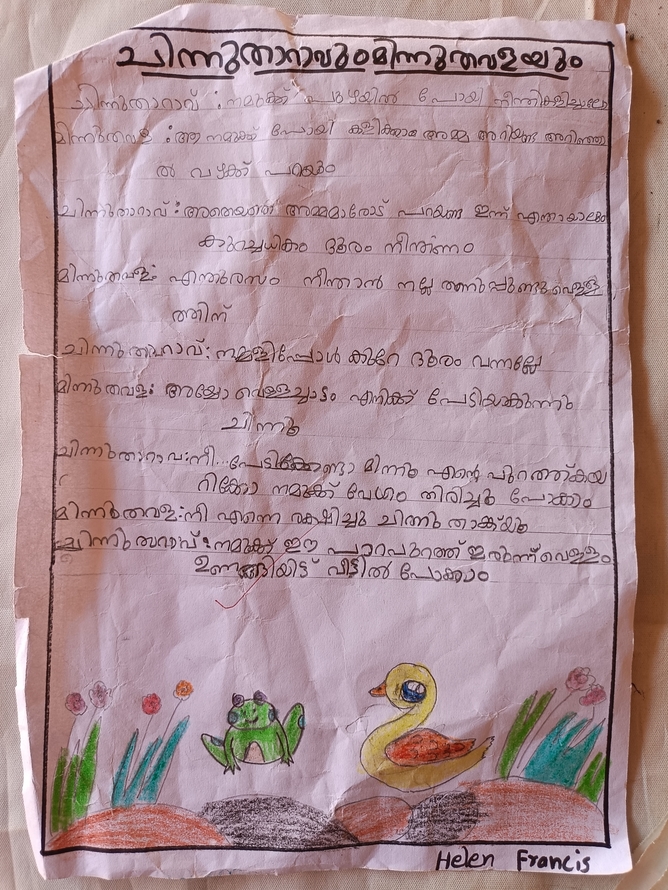 ചിന്നുതാറാവുംമിന്നുതവളയും
ചിന്നുതാറാവ് : നമുക്ക് പുഴയിൽ പോയി നീന്തികളിച്ചാലോ
മിന്നുതവള : ആ നമുക്ക് പോയി കളിക്കാം അമ്മ അറിയണ്ട അറിഞ്ഞാ
ൽ വഴക്ക് പറയും
ചിന്നുതാറാവ് : അമ്മമാരോട് പറയണ്ട ഇന്ന് എന്തായാലും
കുറച്ചധികം ദൂരം നീന്തണം
മിന്നുതവള: എന്തുരസം നീന്താൻ നല്ല തണുപ്പുണ്ടുവെള്ള
ത്തിന്
ചിന്നുതാറാവ്: നമ്മളിപ്പോൾ കുറേ ദൂരം വന്നല്ലോ
മിന്നുതവള: അയ്യോ വെള്ളച്ചാട്ടം എനിക്ക് പേടിയാകുന്നു
ചിന്നു
ചിന്നുതാറാവ:നീ...പേടിക്കേണ്ടാ മിന്നു എന്റെ പുറത്ത്കയ
റിക്കോ നമുക്ക് വേഗം തിരിച്ചു പോക്കാം
മിന്നുതവള:നീ എന്നെ രക്ഷിച്ചു ചിന്നു താങ്ക്യു
ചിന്നുതാറാവ് : നമുക്ക് ഈ പാറപുറത്ത് ഇരുന്ന് വെള്ളം
ഉണങ്ങിയിട്ട് വീട്ടിൽ പോക്കാം
Helen Francis